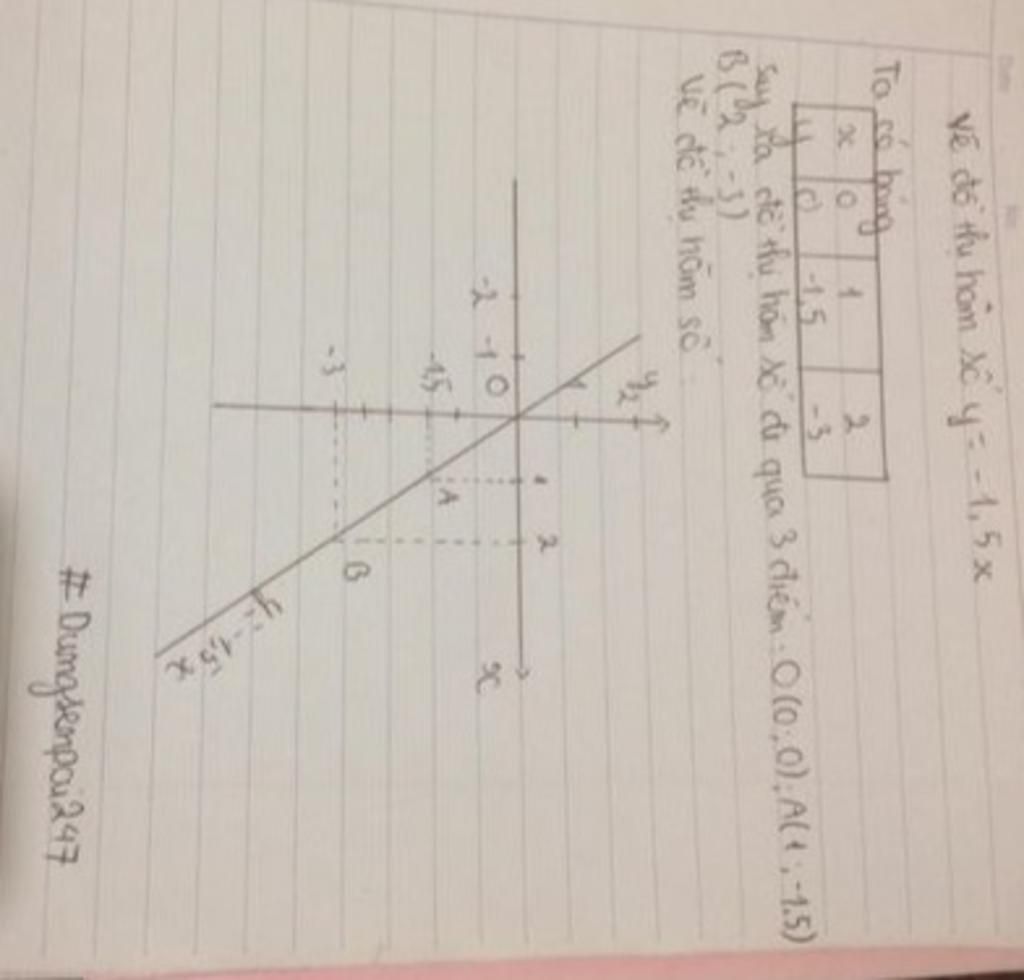 Vẽ đồ thị hàm số y = -1,5x
Ta có bảng
x 0 1 2
y 0 -1,5 -3
suy ra đồ thị hàm số đi qua 3 điểm: O(0;0); A(1;-1,5)
B(2;-3)
Vẽ đồ thị hàm số.
y
2
1
-2 -1 O 1 2 x
-1,5
A
-3
B
y=-1,5x
#Dungsenpai247